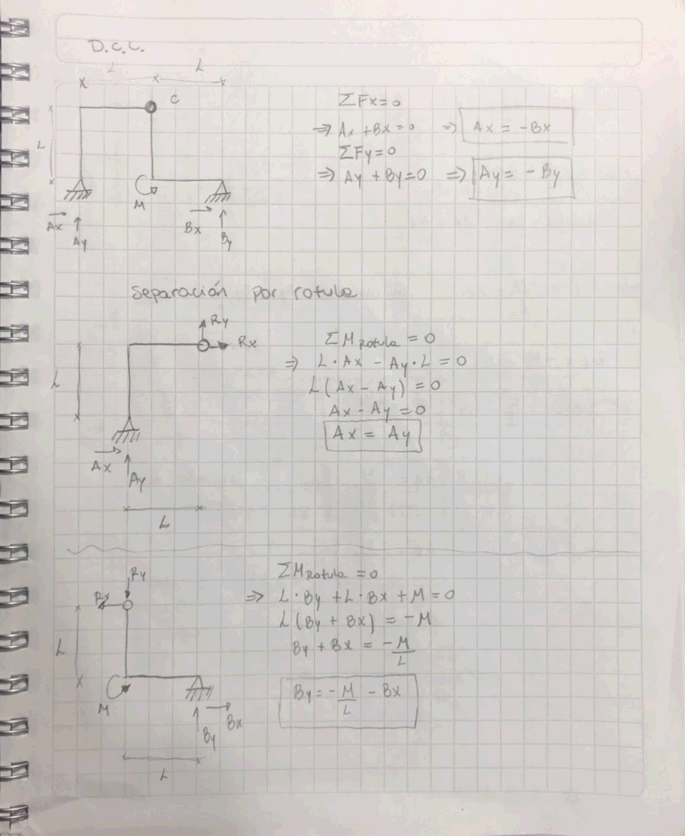 D.C.L.
L L
C
L
M
Ax Ay
Bx By
ΣFx=0
⇒ Ax + Bx = 0 ⇒ Ax = -Bx
ΣFy=0
⇒ Ay + By=0 ⇒ Ay = - By
Separación por rotula
Ry
Rx
L
Ax
Ay
L
ΣM Rotula = 0
⇒ L·Ax - Ay·L = 0
L(Ax - Ay) = 0
Ax - Ay = 0
Ax = Ay
Ry
Rx
L
M
Bx
By
L
ΣM Rotula = 0
⇒ L·By + L·Bx + M = 0
L(By + Bx) = -M
By + Bx = -M/L
By = -M/L - Bx